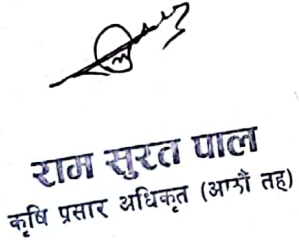 राम सुरत पाल
कृषि प्रसार अधिकृत (आठौं तह)